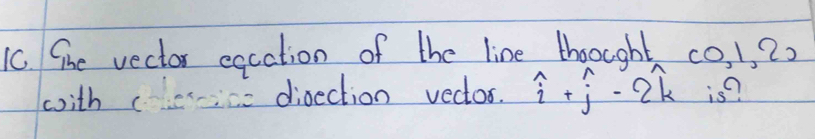 1C. The vector eqcation of the line thoocght (0,1,2)
with direction vector. î + ĵ - 2k̂ is?